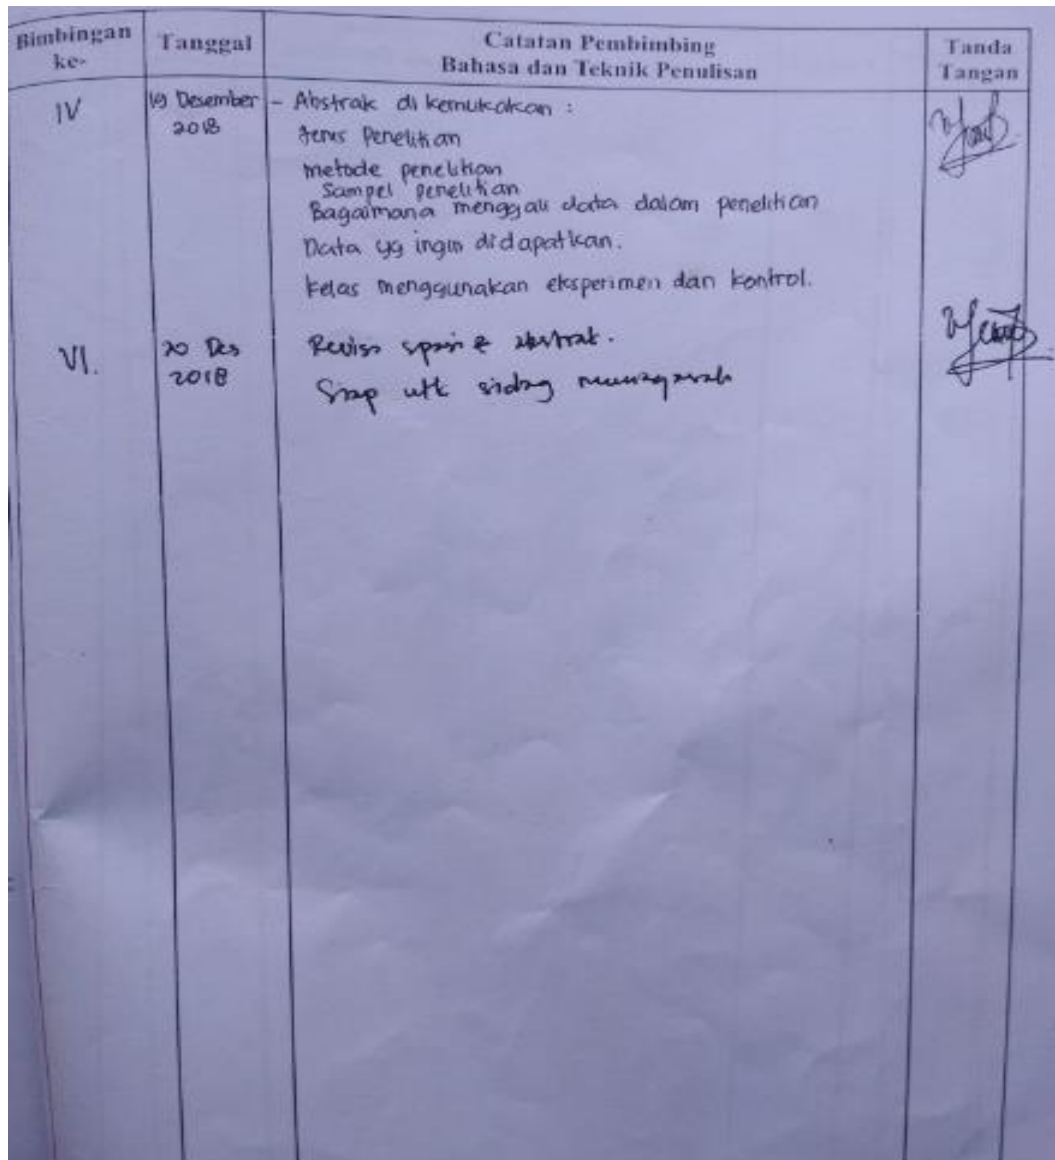 Bimbingan ke-
Tanggal
Catatan Pembimbing
Bahasa dan Teknik Penulisan
Tanda Tangan
IV
19 Desember
2018
- Abstrak di kemukakan :
Jenis Penelitian
metode penelitian
Sampel penelitian
Bagaimana menggali data dalam penelitian
Data yg ingin didapatkan.
kelas menggunakan eksperimen dan kontrol.
VI.
20 Des
2018
Revisi abstrak.
Siap utk sidang munaqasah